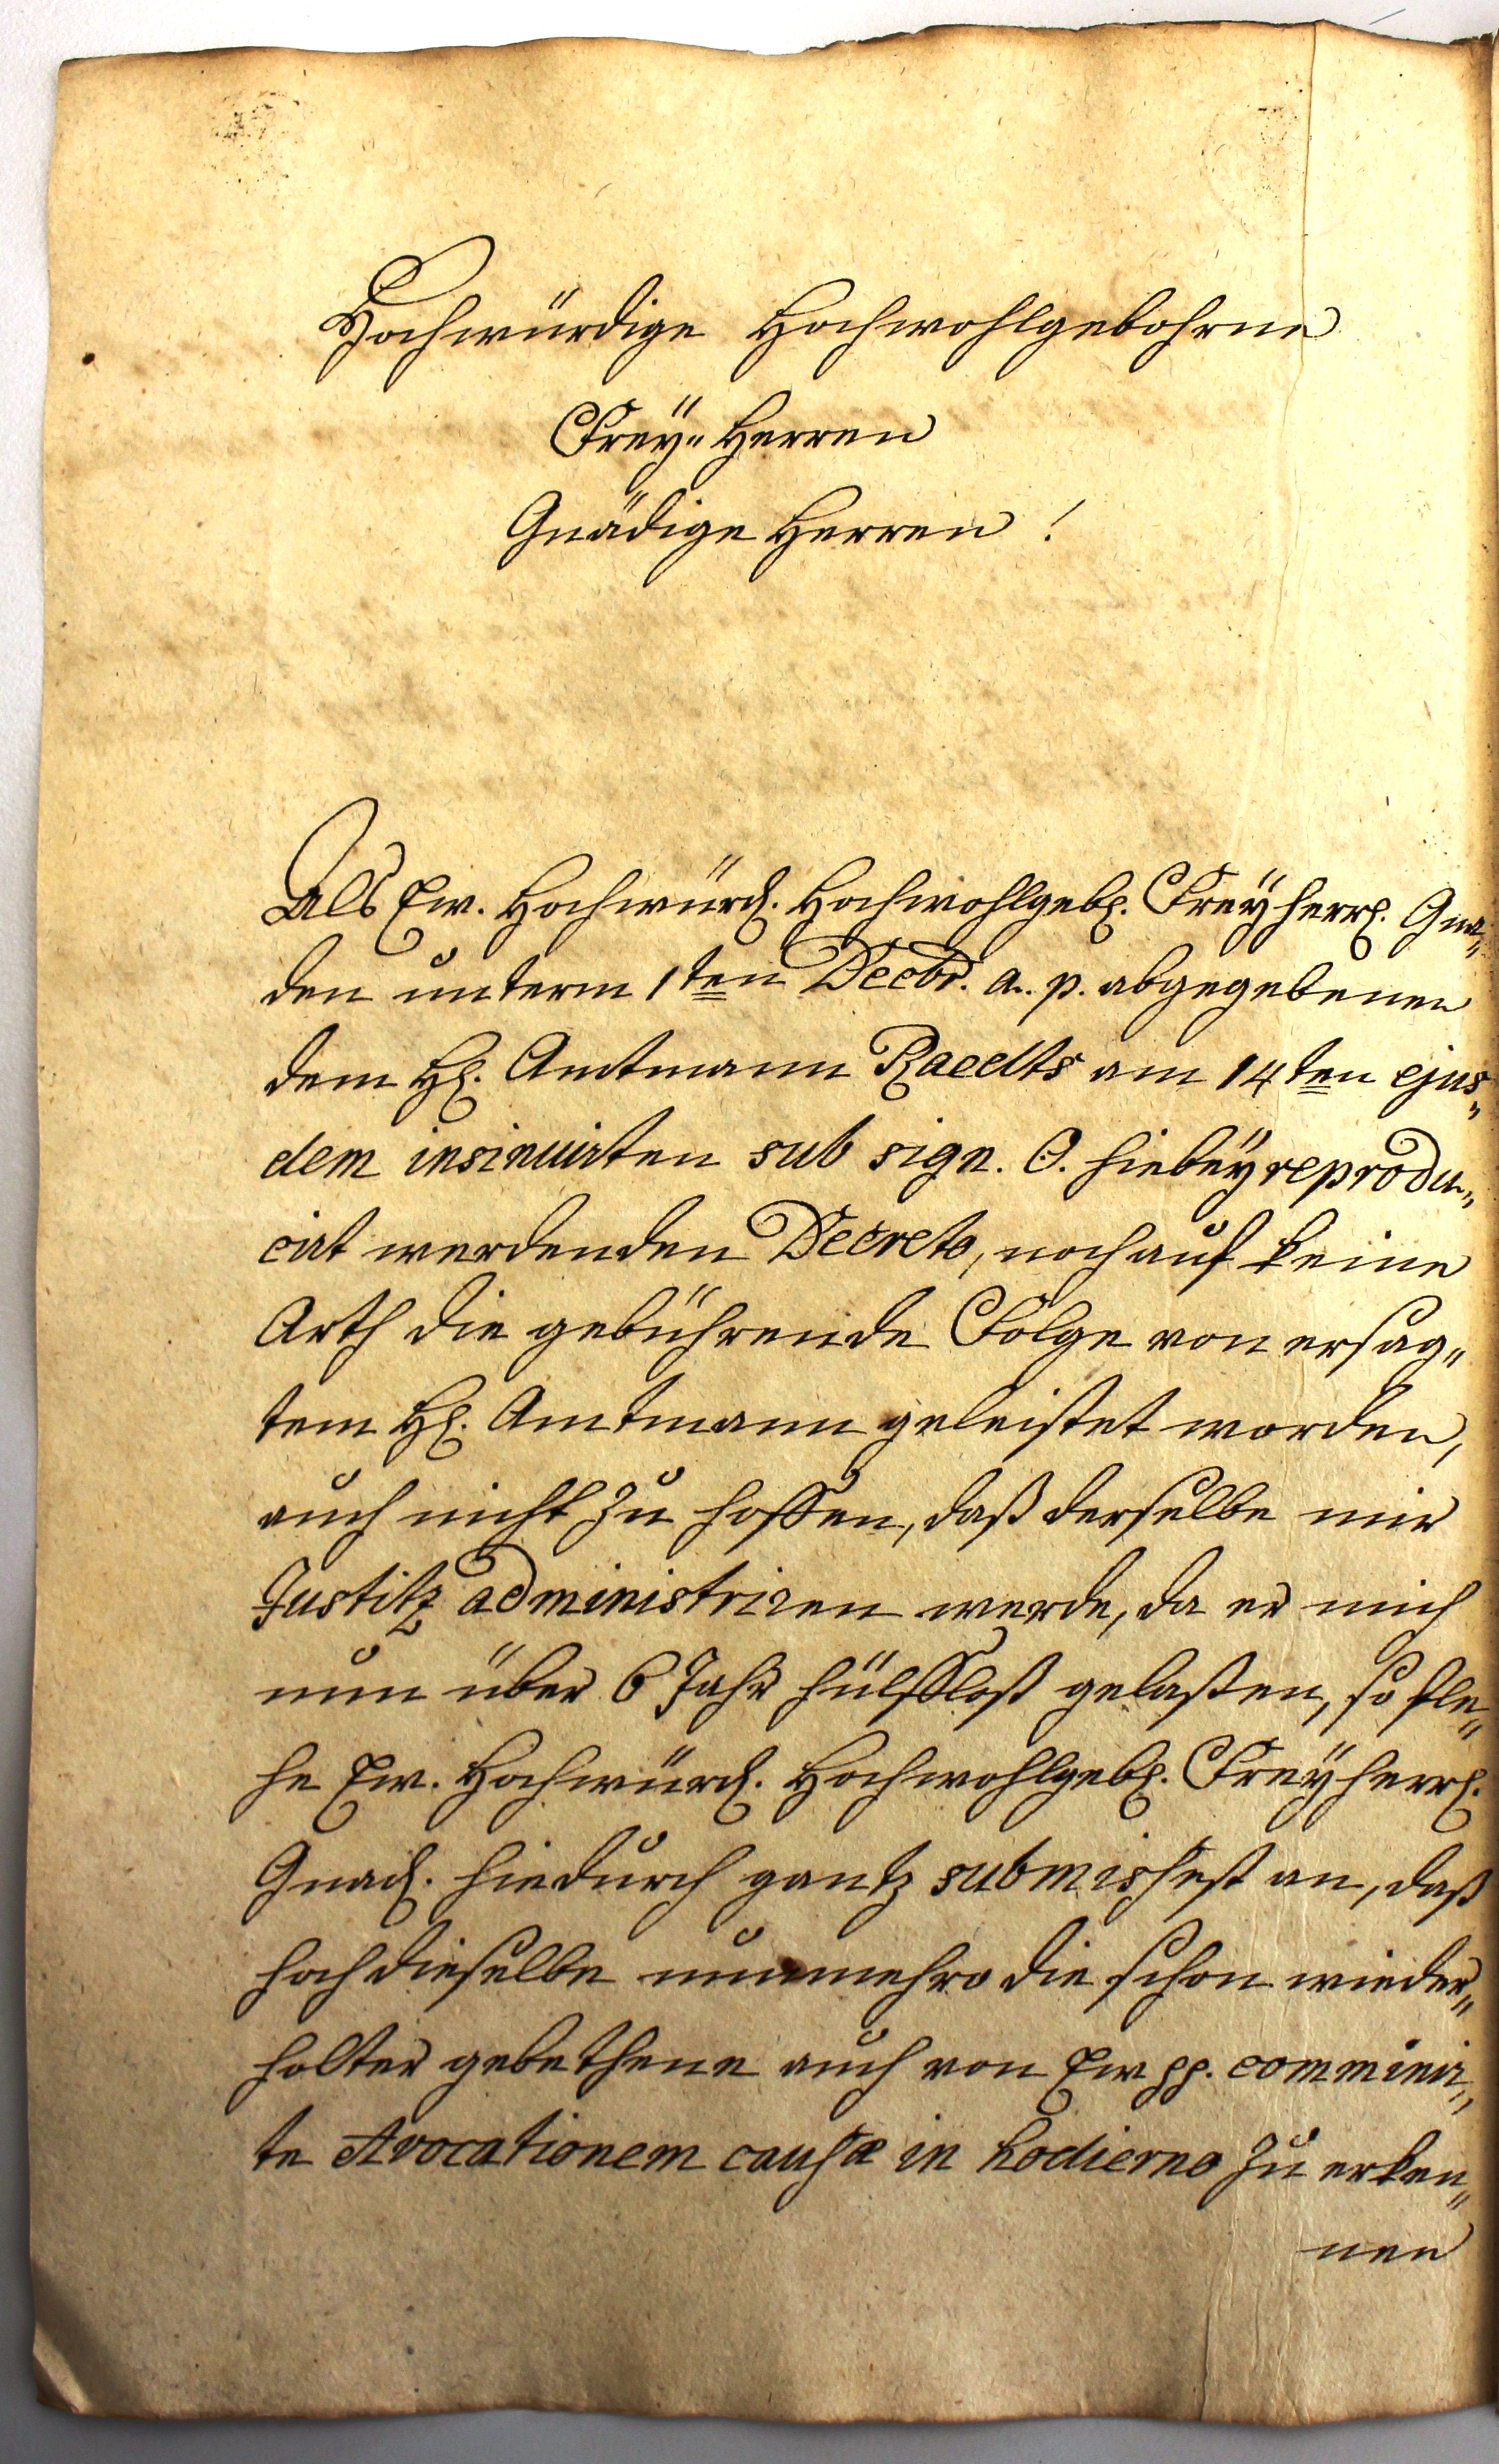 Hochwürdige Hochwohlgebohrne
Freÿ„ Herren
Gnädige Herren !
Als Ew. Hochwürd. Hochwohlgeb. Freÿherrl. Gna„
den unterm 1ten Decbr. a. p. abgegebenen
dem H. Amtmann Raedts am 14ten ejus„
dem insinuirten sub sign. O. hiebeÿ reprodu„
cirt werdenden Decreto, noch auf keine
Arth die gebührende Folge von ersag„
tem H. Amtmann geleistet worden,
auch nicht zu hoffen, daß derselbe mir
Justitz administriren werde, da er mich
nun über 6 Jahr hülffloß gelaßen, so fle„
he Ew. Hochwürd. Hochwohlgeb. Freÿherrl.
Gnad. hiedurch gantz submissest an, daß
hochdieselbe nunmehro die schon wieder„
holter gebethene auch von Ew pp. comminir„
te Avocationem causæ in hodierno zu erken„
nen